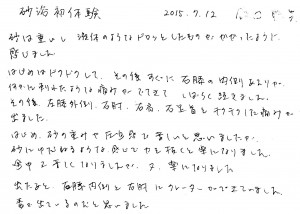 砂浴初体験 2015.7.12
砂は重いし 液体のようなドロッとしたものがかかったように
感じました
はじめはドクドクして、その後すぐに右膝の内側あたりが
何かに刺されたような痛みがでてきて しばらく続きました。
その後、左膝外側、右肘、右肩、右 首とチクチクした痛みが
出ました。
はじめ、砂の重みや圧迫感で苦しいと思いましたが、
砂にゆだねるような感じで力を抜くと楽になりました。
途中 2 苦しくなりましたが、又、楽になりました
出たあと、右膝内側と右肘にクレーターがでていました。
毒が出ているのだと思いました